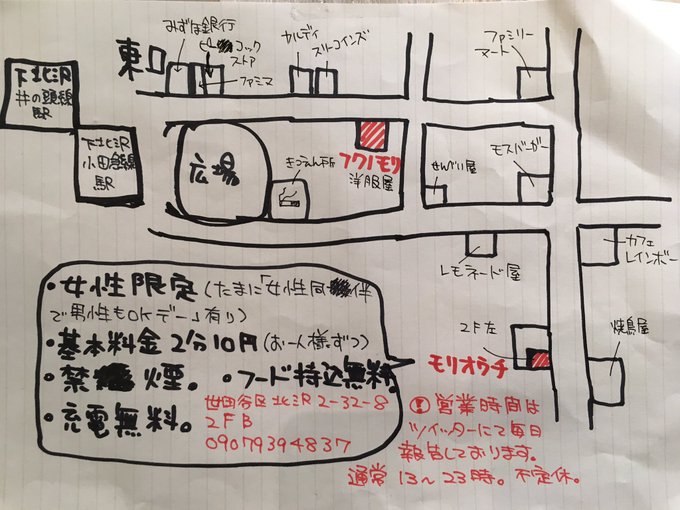 みずほ銀行
コック
ストア
カルディ
スリーコインズ
ファミリー
マート
東口
ファミマ
下北沢
井の頭線
駅
下北沢
小田急線
駅
広場
きつえん所
フクノモリ
洋服屋
せんべい屋
モスバーガー
レモネード屋
カフェ
レインボー
2F左
焼鳥屋
モリオウチ
・女性限定(たまに「女性同伴
で男性もOKデー」有り)
・基本料金2分10円(お一人様ずつ)
・禁煙。 ・フード持込無料。
・充電無料。
世田谷区北沢2-32-8
2FB
09079394837
! 営業時間は
ツイッターにて毎日
報告しております。
通常 13〜23時。不定休。